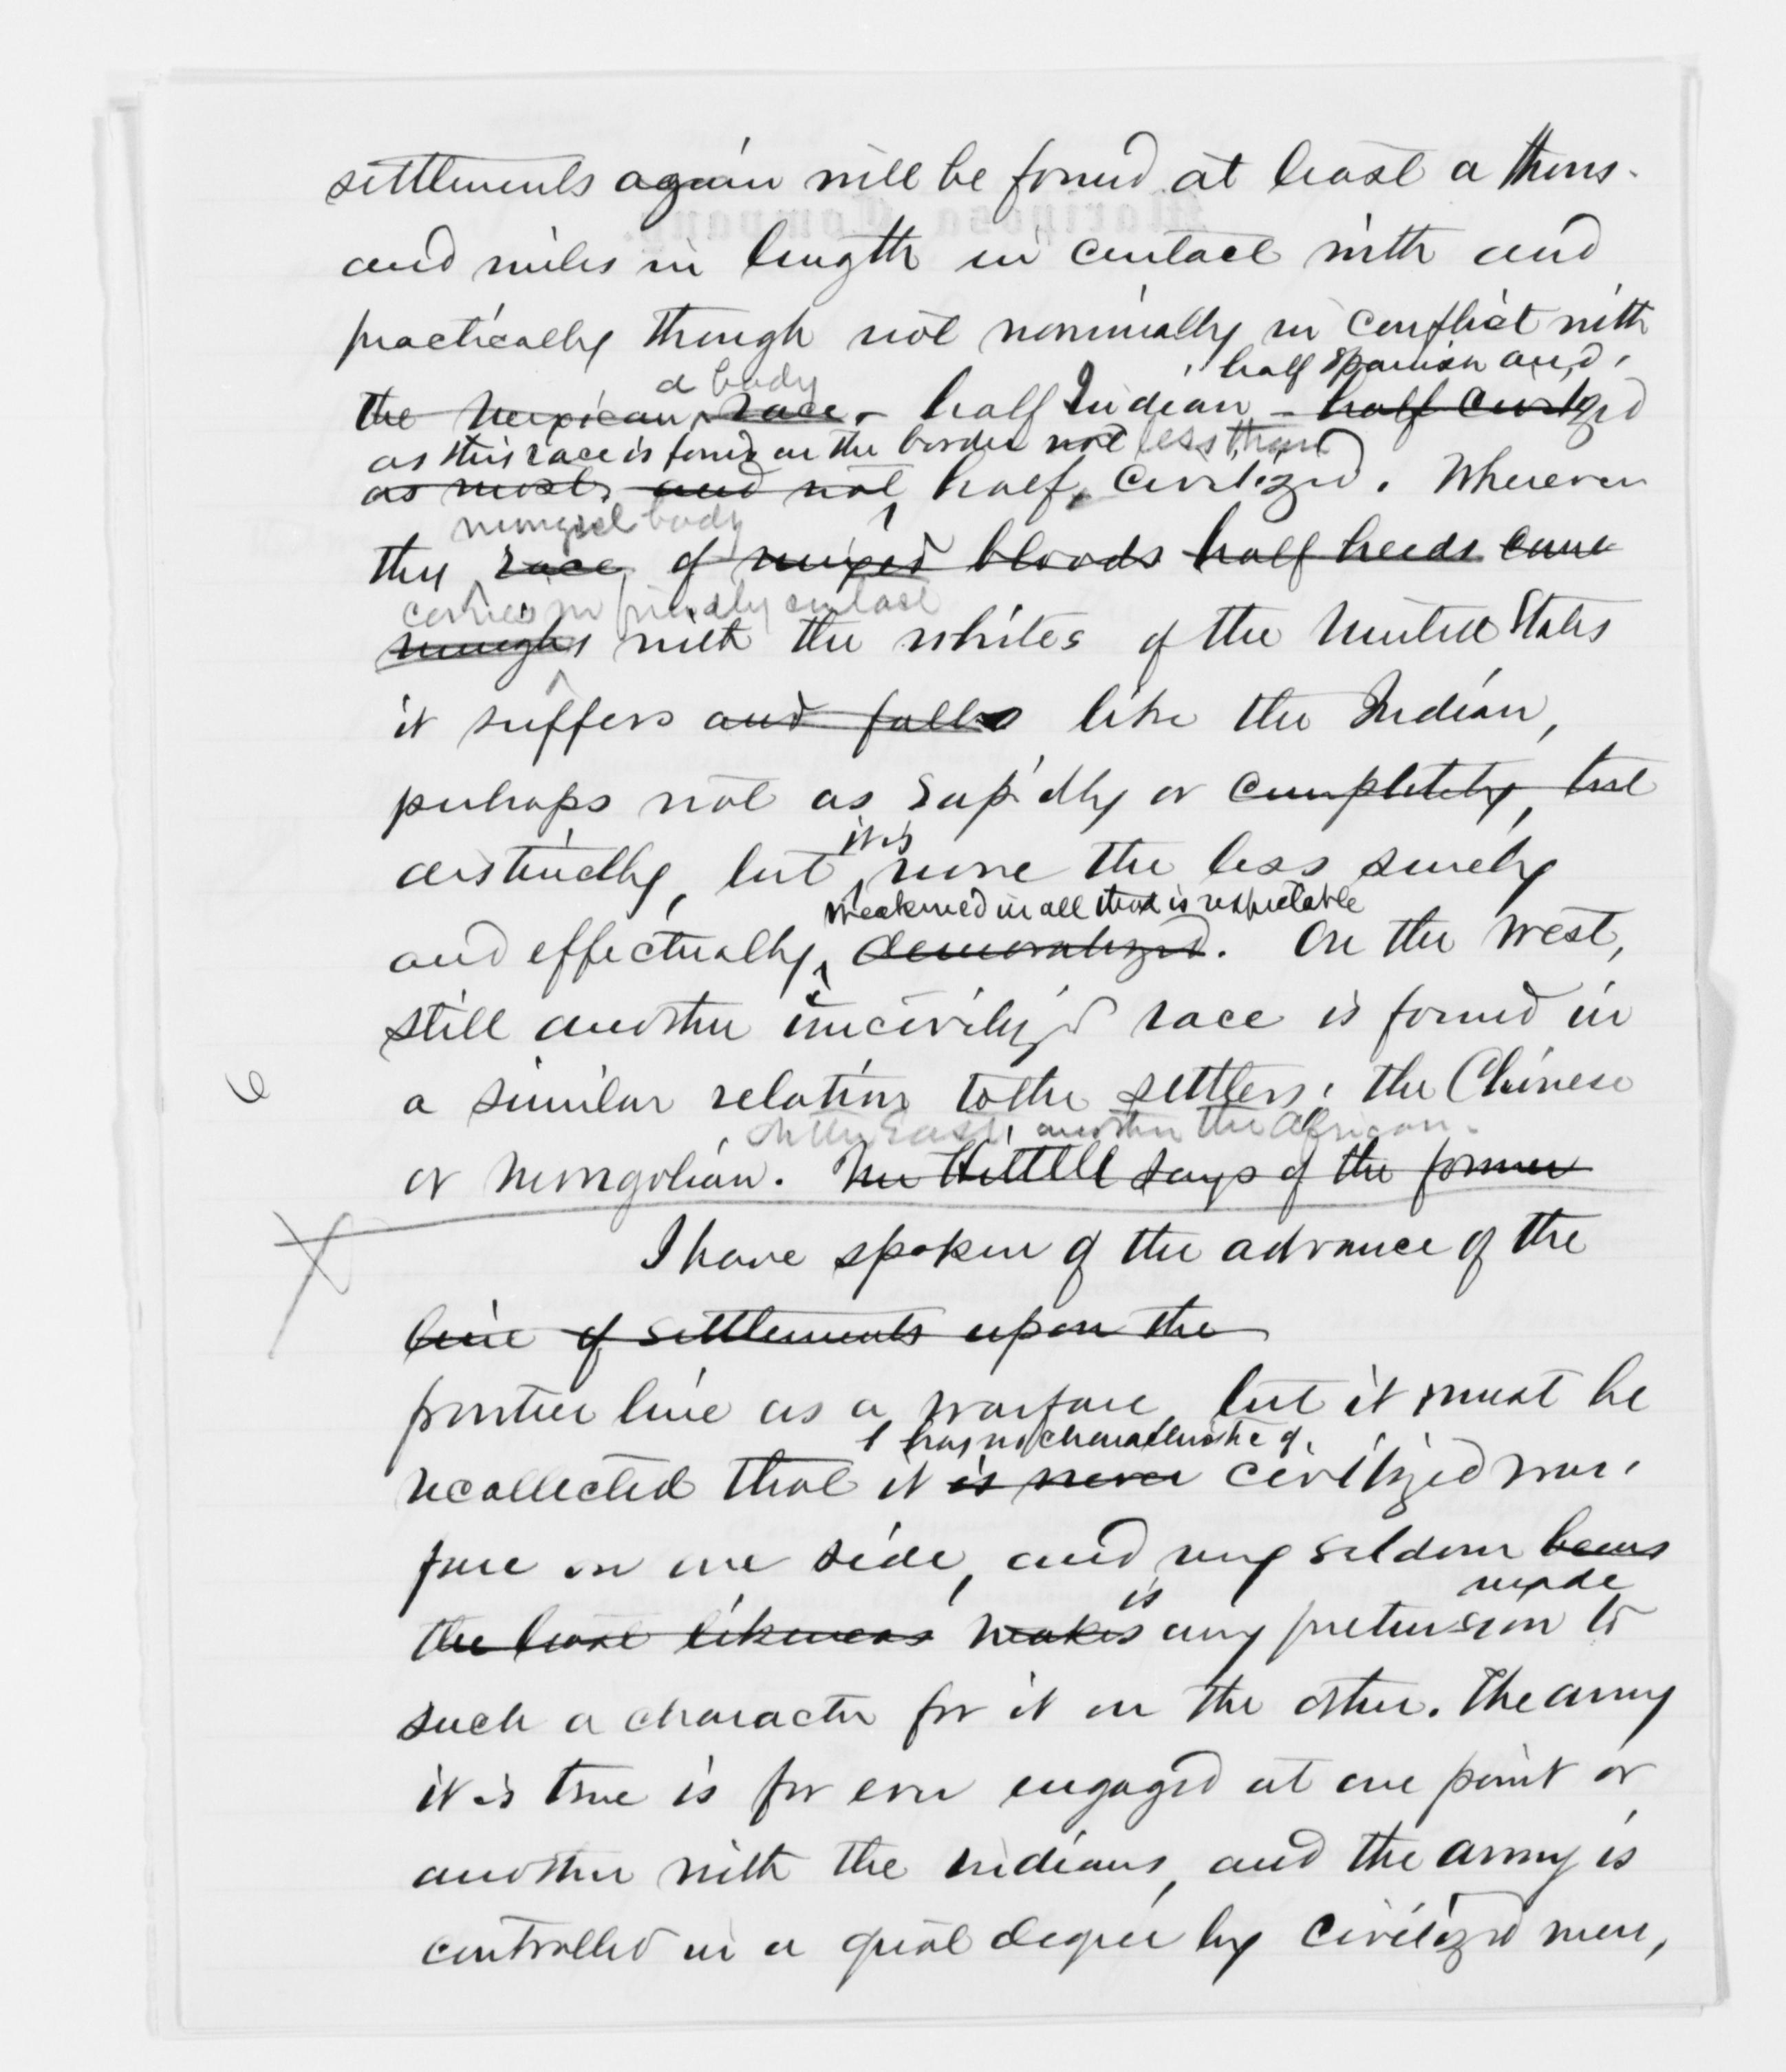 settlements again will be found at least a thous-
and miles in length in contact with and
practically though not nominally in conflict with
a body half Spanish and
the Mexican race - half Indian - half civilized
as this race is found on the border not less than
as most, and not half civilized. Wherever
mongrel body
this race of mixed bloods half breeds come
comes in friendly contact
mingles with the whites of the United States
it suffers and falls like the Indian,
perhaps not as rapidly or completely, but
distinctly, but it is none the less surely
weakened in all that is respectable
and effectually, demoralized. On the West,
still another uncivilized race is found in
a similar relation to the settlers, the Chinese
On the East, another the African.
or Mongolian. Mr Hittell says of the former
I have spoken of the advance of the
line of settlements upon the
frontier line as a warfare, but it must be
has no characteristic of
recollected that it is never civilized war-
fare on one side, and very seldom bears
is made
the least likeness makes any pretension to
such a character for it on the other. The army
it is true is for ever engaged at one point or
another with the Indians, and the army is
controlled in a great degree by civilized men,
6
Mariposa Company.